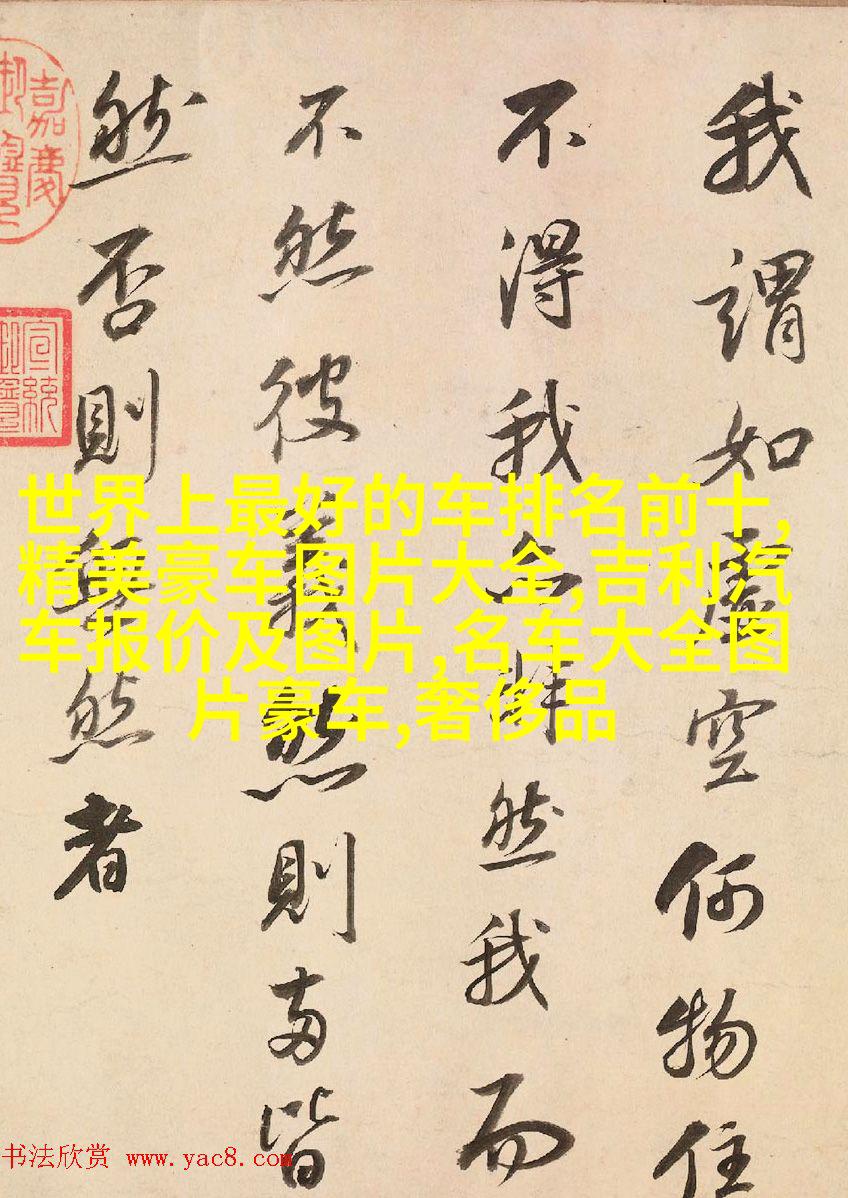 世界上最好的车排名前十,
精美豪车图片大全,吉利汽
车报价及图片,名车大全图
片豪车,奢侈品
我謂如虛空何物住
不得我然我而
不然彼義然則兩皆
然否則然者
嘉慶
御覽
宣統
御覽
书法欣赏 www.yac8.com